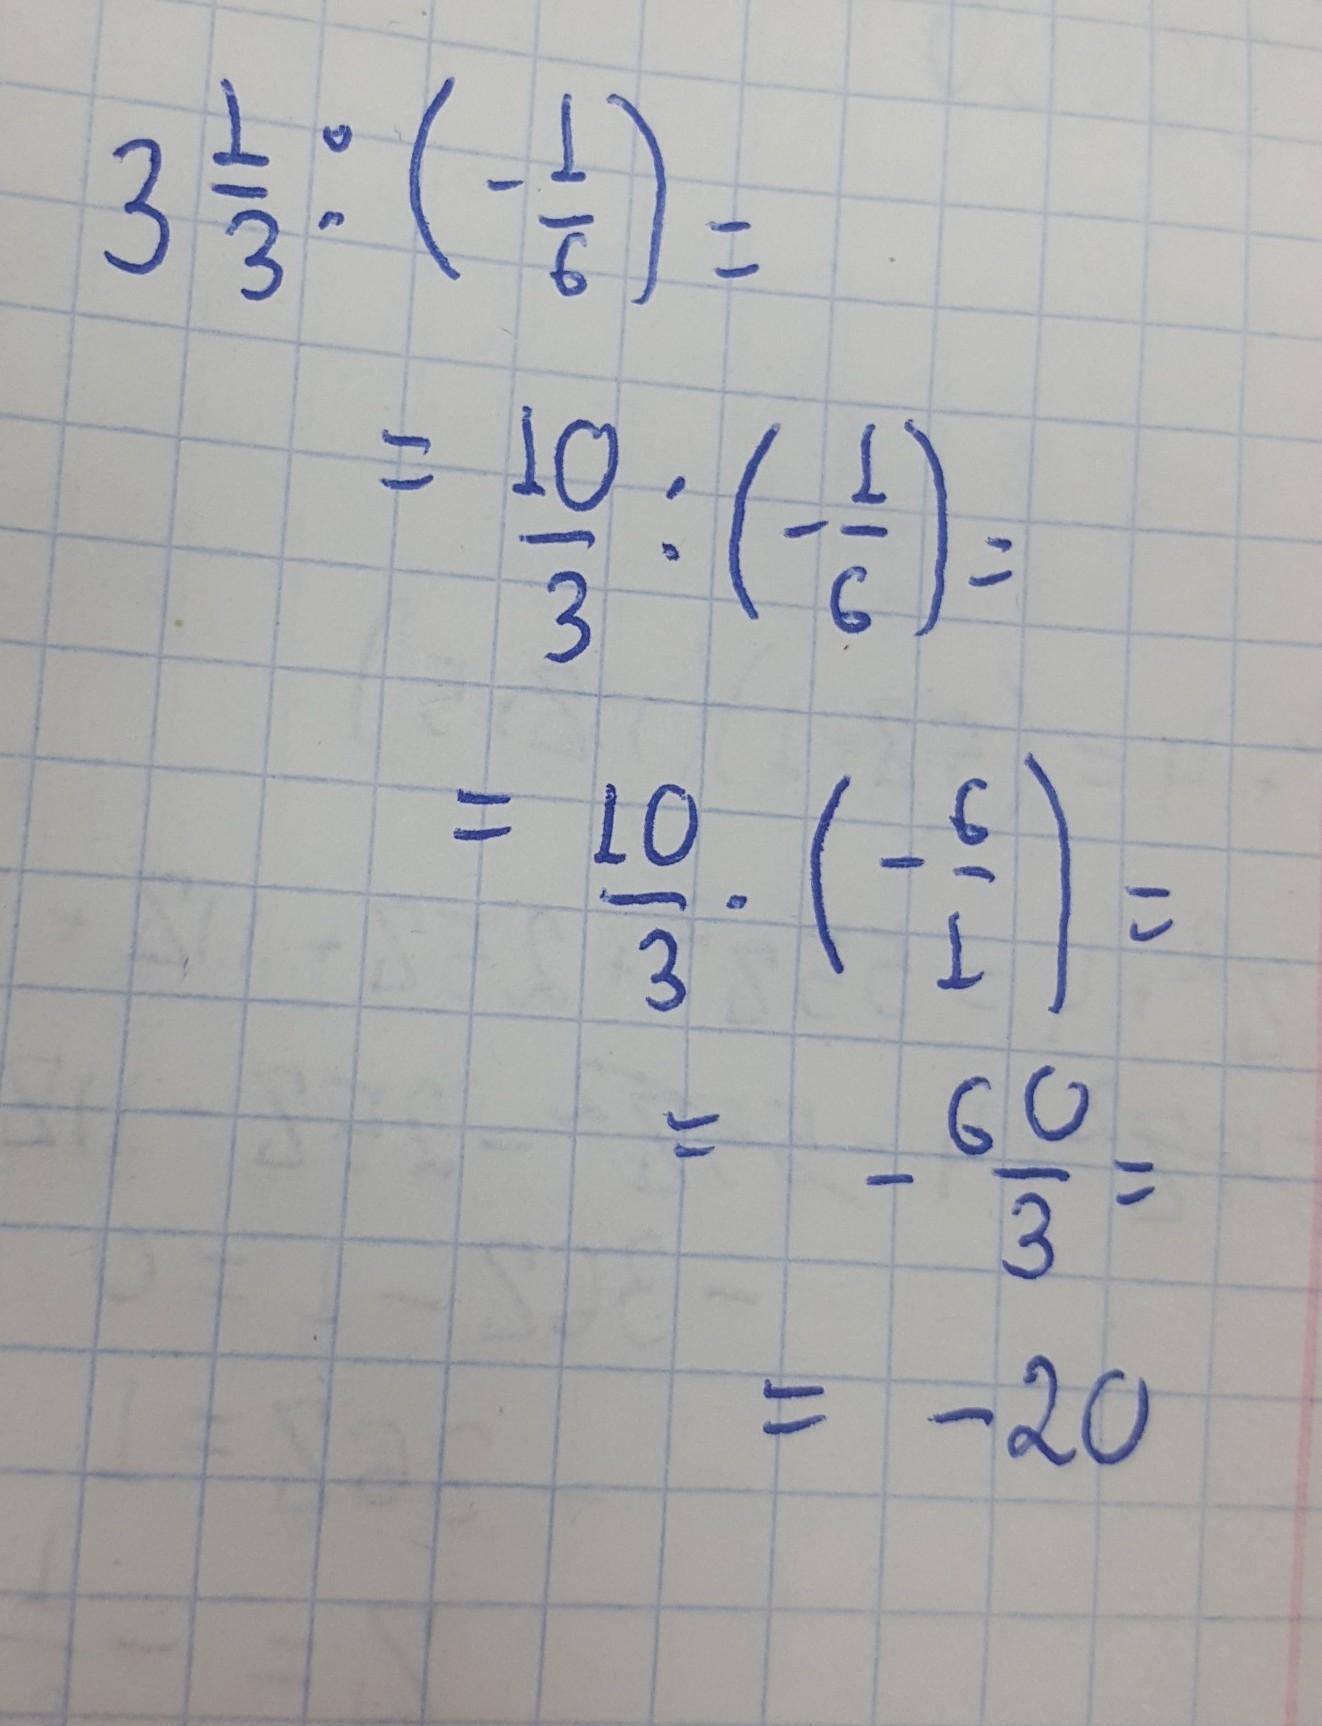 3 1/3 : (- 1/6) =
= 10/3 : (- 1/6) =
= 10/3 · (- 6/1) =
= - 60/3 =
= -20